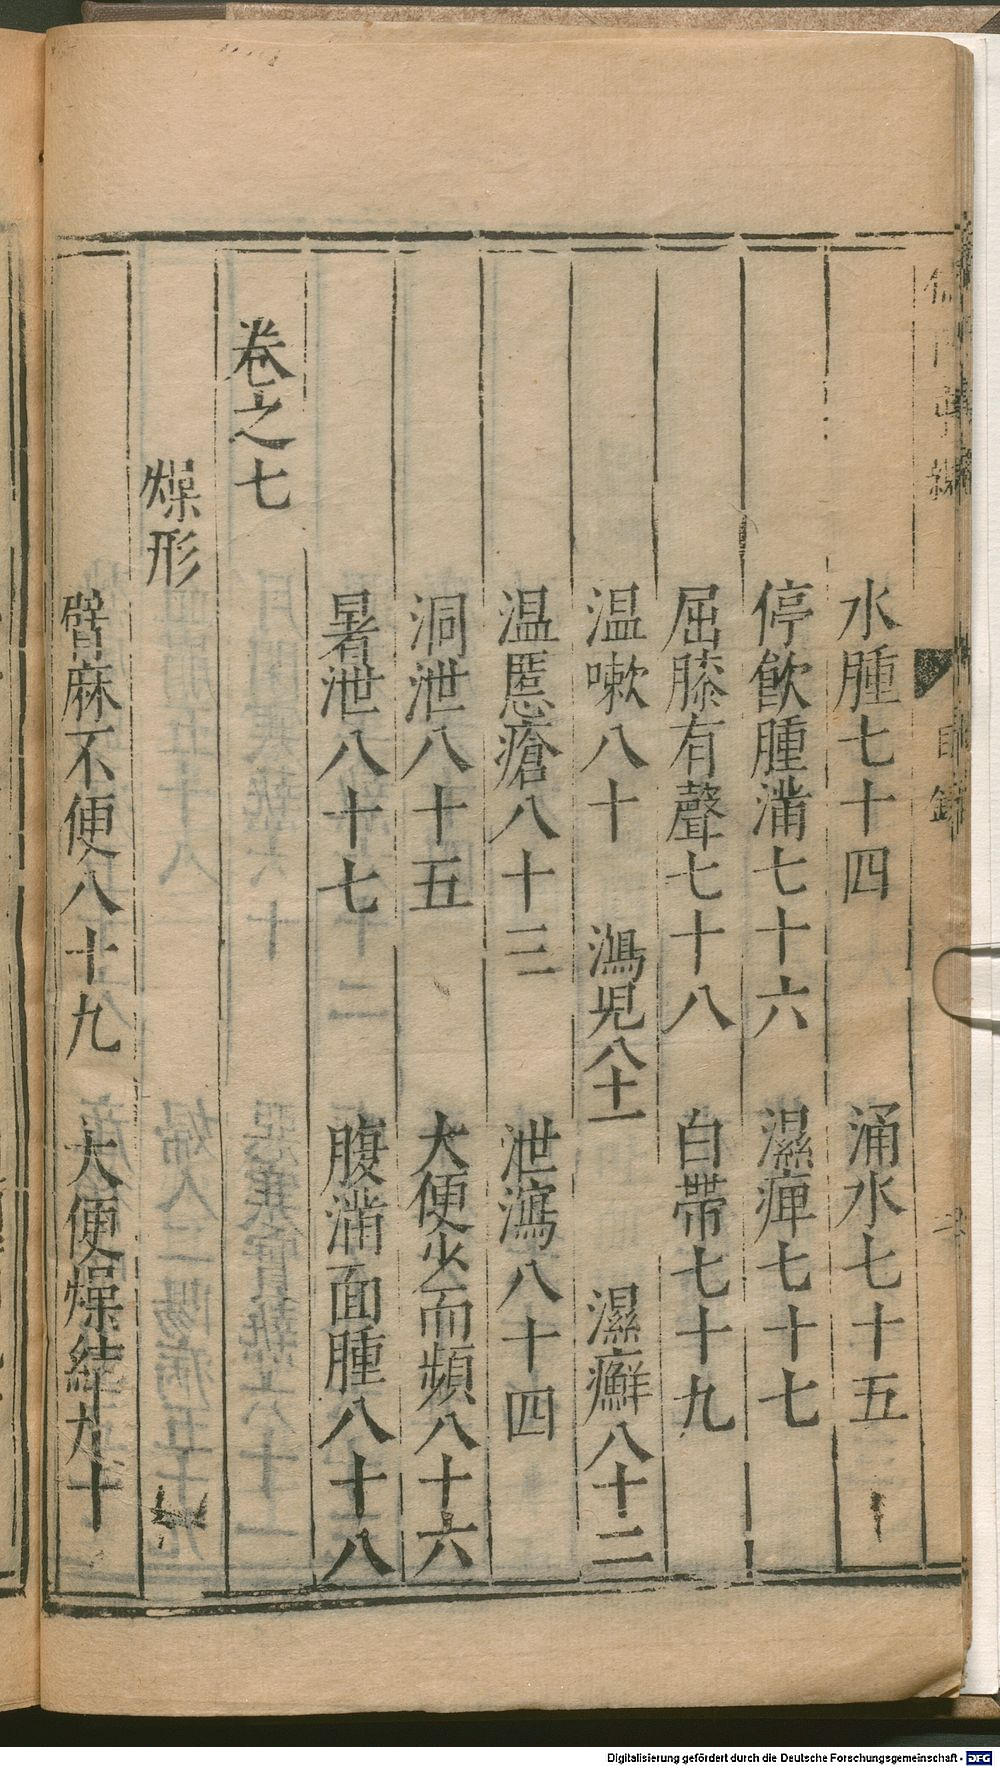 水腫七十四　涌水七十五
停飲腫滿七十六　濕痺七十七
屈膝有聲七十八　白帶七十九
温嗽八十　㵾児八十一　濕癬八十二
温䘌瘡八十三　泄瀉八十四
洞泄八十五　大便少而頻八十六
暑泄八十七　腹滿面腫八十八
卷之七
燥形
臂麻不便八十九　大便燥結九十
Digitalisierung gefördert durch die Deutsche Forschungsgemeinschaft - DFG